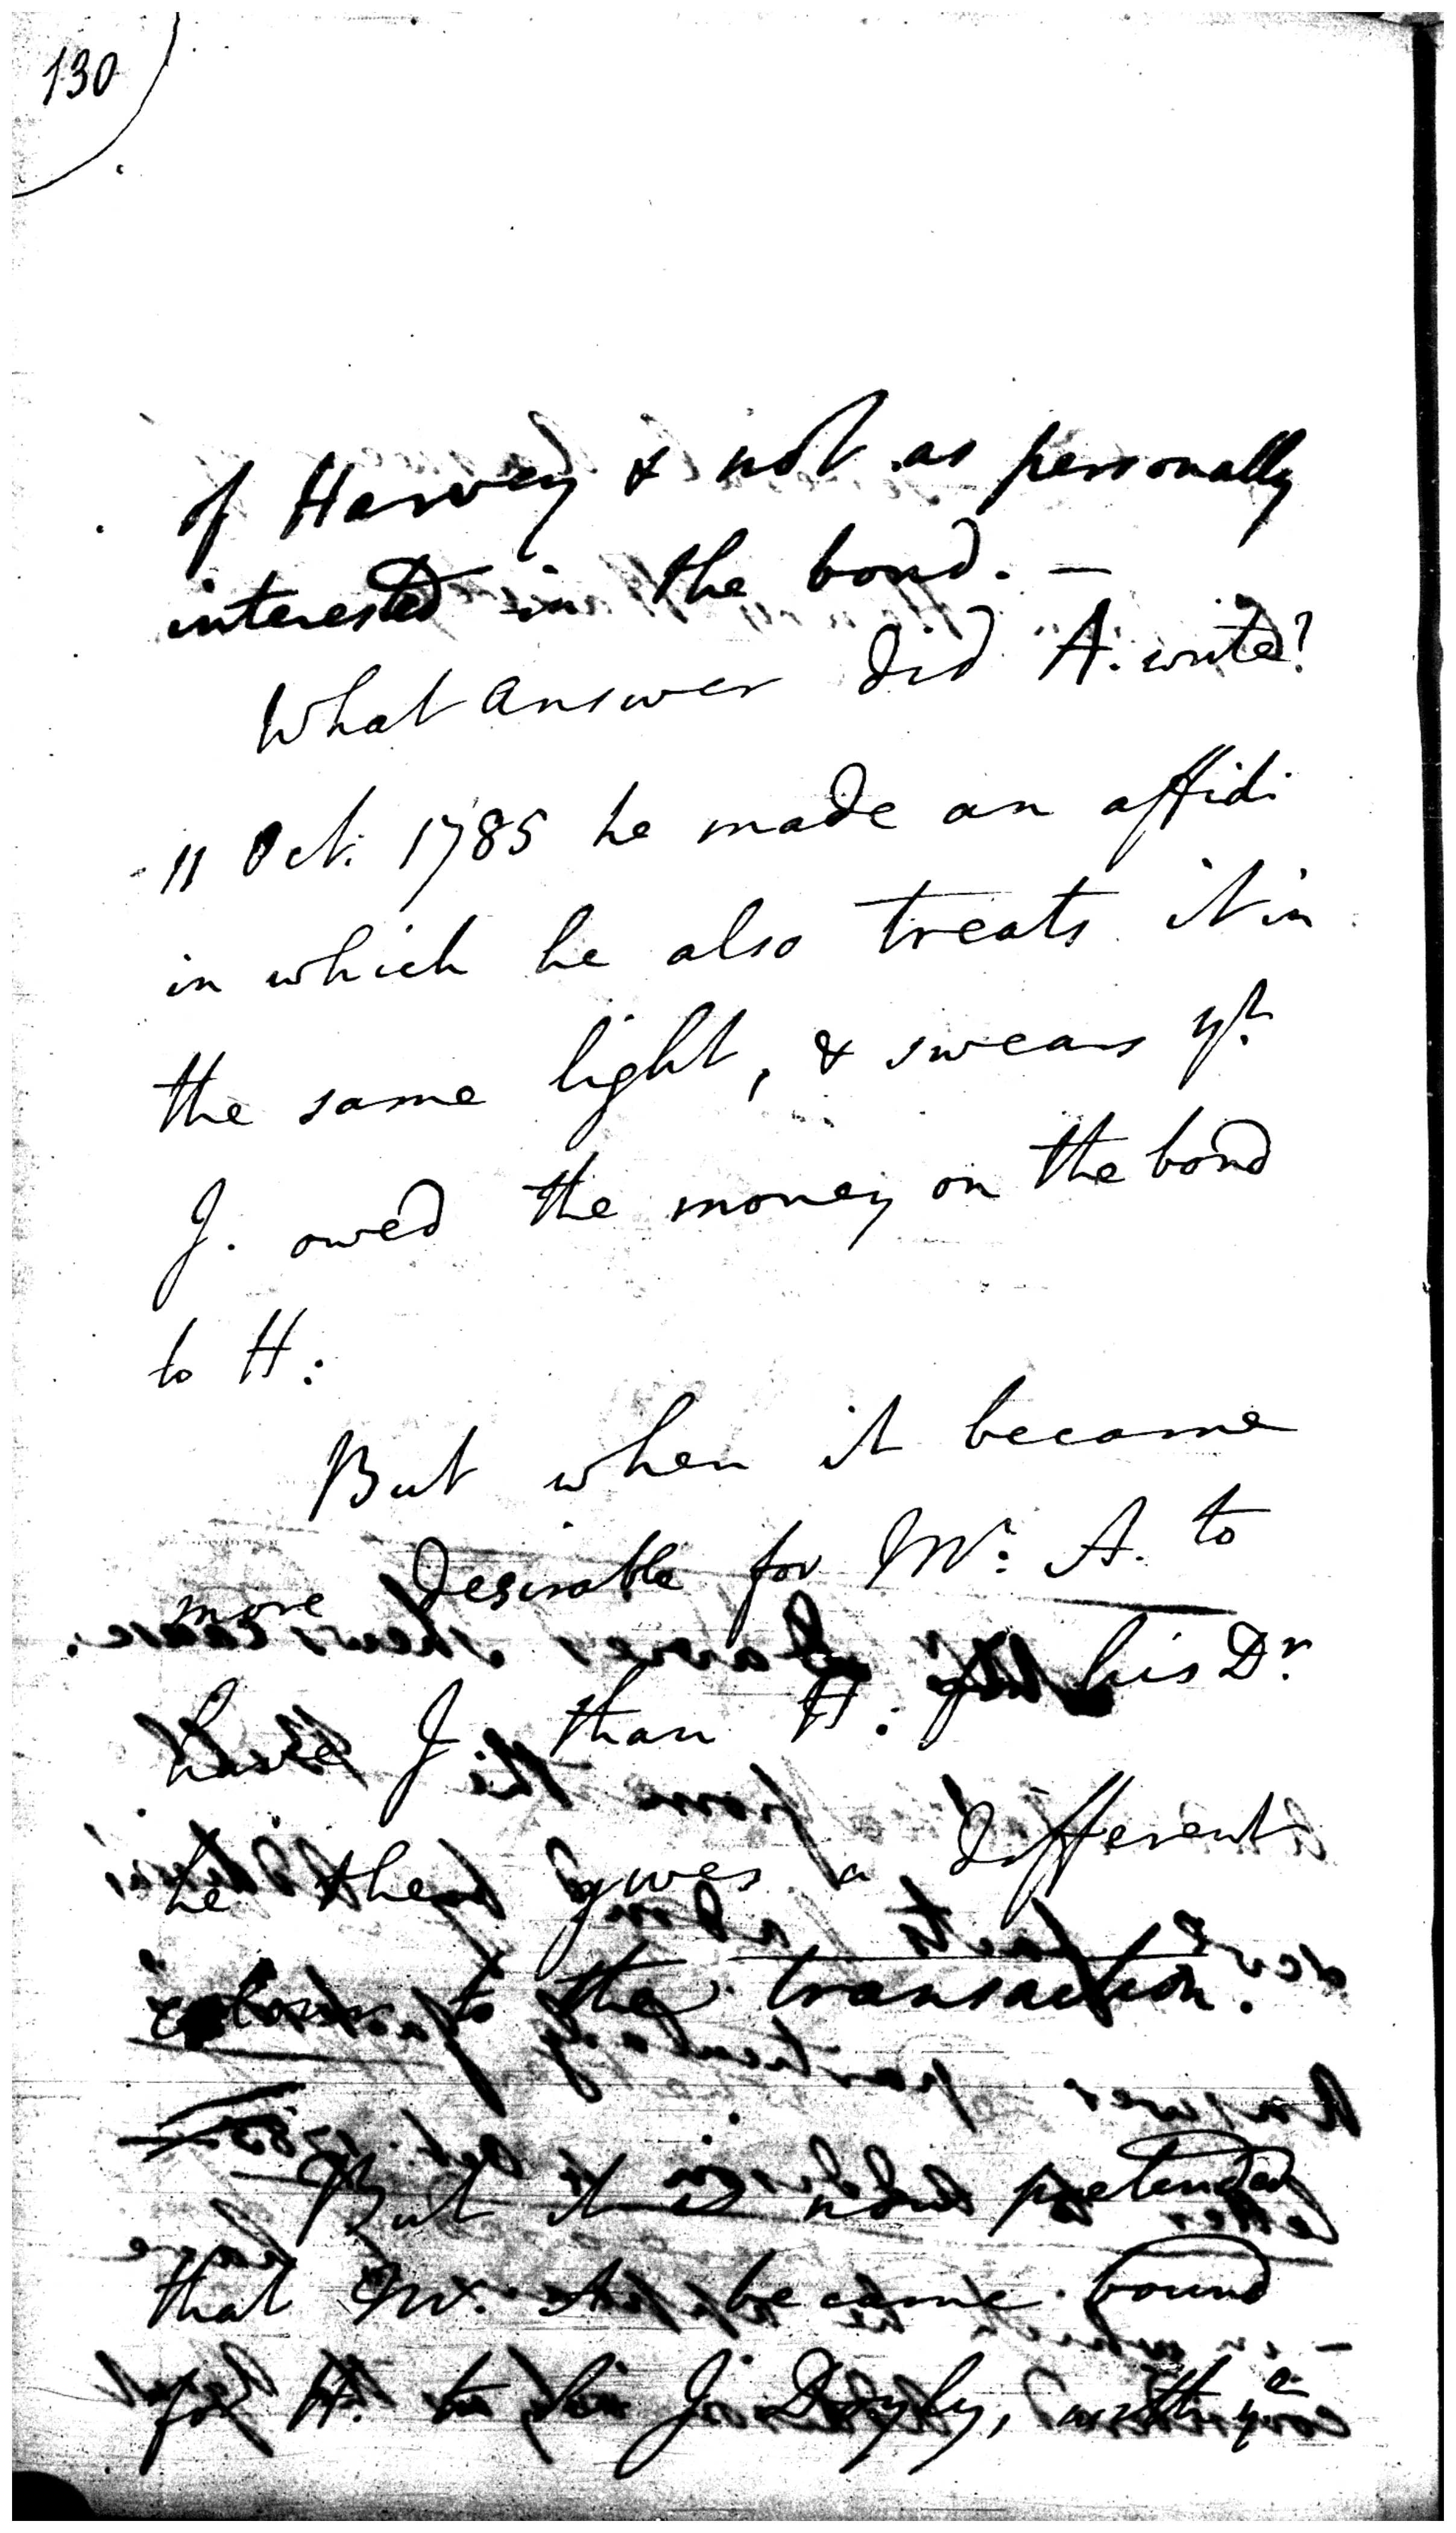 130
of Harvey & not as personally
interested in the bond. —
What answer did A. write?
11 Oct. 1785 he made an affidt
in which he also treats it in
the same light, & swears yt.
J. owed the money on the bond
to H:
But when it became
more desirable for Mr: A. to
have J. than H: his Dr.
he then gives a different
to the transaction.
But it is now pretended
that Mr. A. became bound
for H. to Sir J. Doyly, with ye